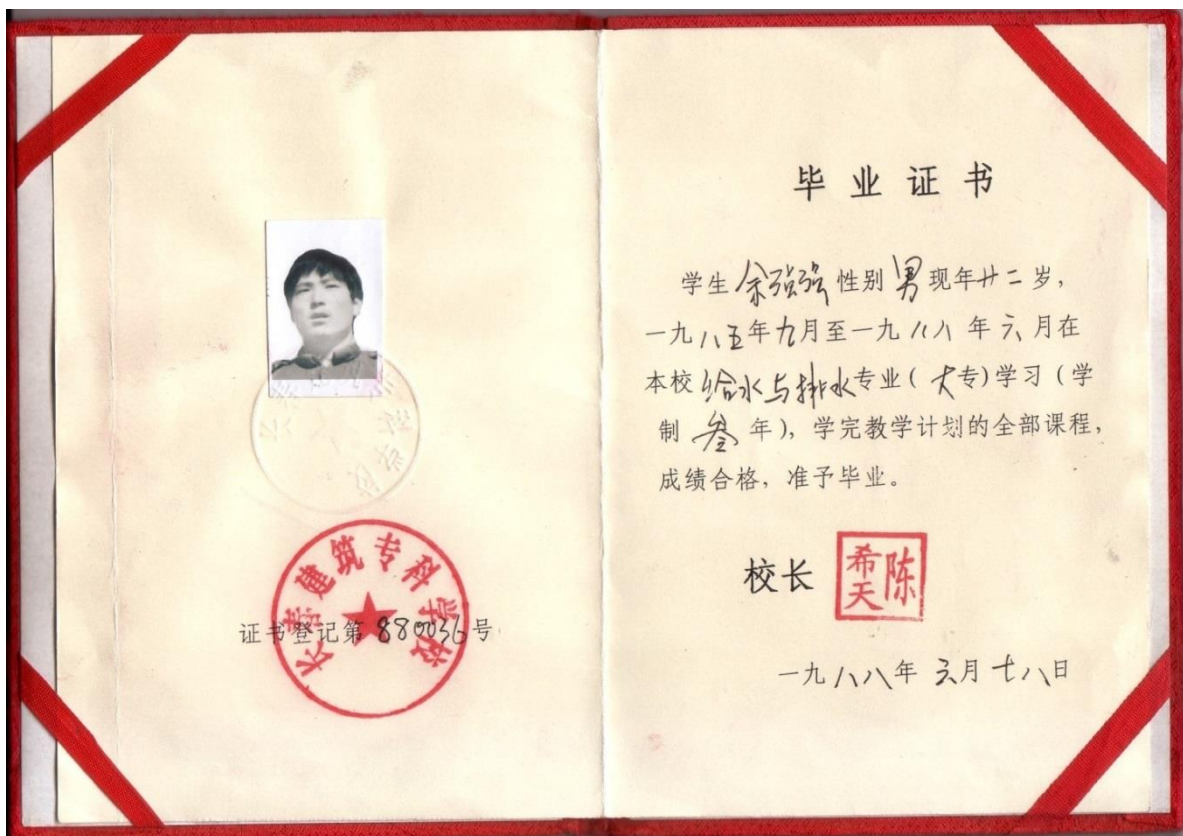 长春建筑专科学校
证书登记第880036号
毕业证书
学生余强强性别男现年廿二岁，
一九八五年九月至一九八八年六月在
本校给水与排水专业（大专）学习（学
制叁年），学完教学计划的全部课程，
成绩合格，准予毕业。
校长 陈希天
一九八八年六月八日